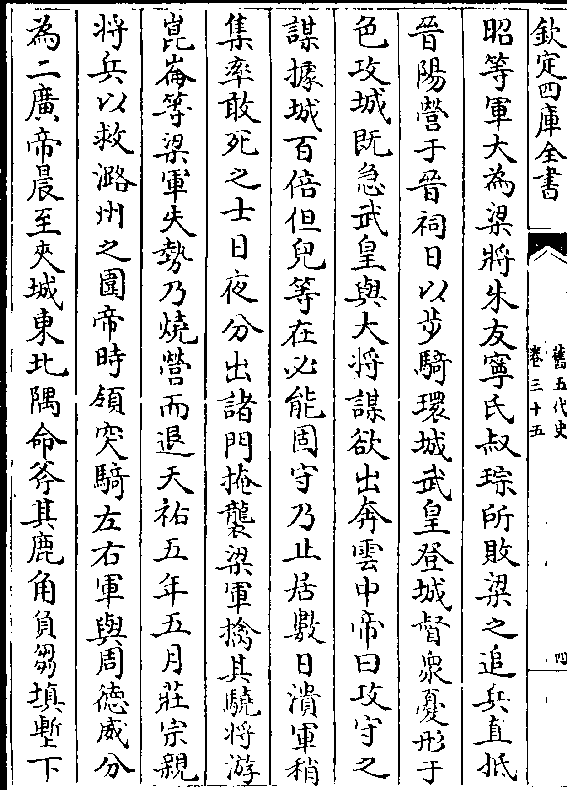 欽定四庫全書
舊五代史
卷三十五
四
昭等軍大為梁將朱友寧氏叔琮所敗梁之追兵直抵
晉陽營于晉祠日以步騎環城武皇登城督衆憂形于
色攻城既急武皇與大將謀欲出奔雲中帝曰攻守之
謀據城百倍但兒等在必能固守乃止居數日潰軍稍
集率敢死之士日夜分出諸門掩襲梁軍擒其驍將游
崑崙等梁軍失勢乃燒營而退天祐五年五月莊宗親
将兵以救潞州之圍帝時領突騎左右軍與周德威分
為二廣帝晨至夾城東北隅命斧其鹿角負芻填塹下